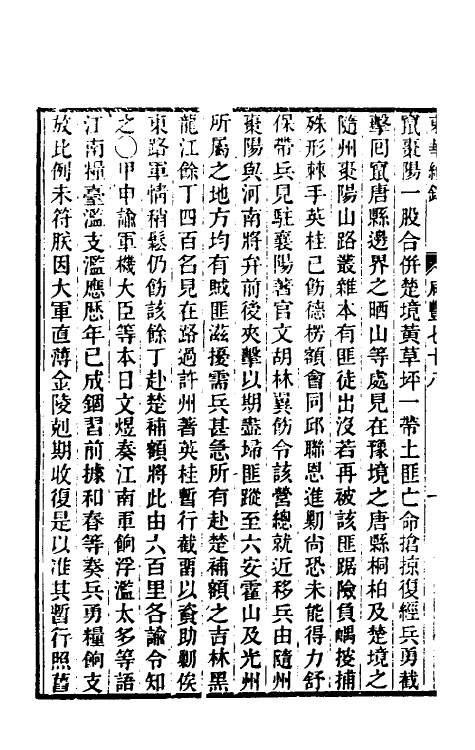 東華續錄 咸豐七十八 一
竄棗陽一股合併楚境黃草坪一帶土匪亡命搶掠復經兵勇截
擊回竄唐縣邊界之晒山等處見在豫境之唐縣桐柏及楚境之
隨州棗陽山路叢雜本有匪徒出沒若再被該匪踞險負嵎搜捕
殊形棘手英桂已飭德楞額會同邱聯恩進勦尙恐未能得力舒
保帶兵見駐襄陽著官文胡林翼飭令該營總就近移兵由隨州
棗陽與河南將弁前後夾擊以期盡埽匪蹤至六安霍山及光州
所屬之地方均有賊匪滋擾需兵甚急所有赴楚補額之吉林黑
龍江餘丁四百名見在路過許州著英桂暫行截畱以資助勦俟
東路軍情稍鬆仍飭該餘丁赴楚補額將此由六百里各諭令知
之〇甲申諭軍機大臣等本日文煜奏江南軍餉浮濫太多等語
江南糧臺濫支濫應歷年已成錮習前據和春等奏兵勇糧餉支
放比例未符朕因大軍直薄金陵剋期收復是以准其暫行照舊